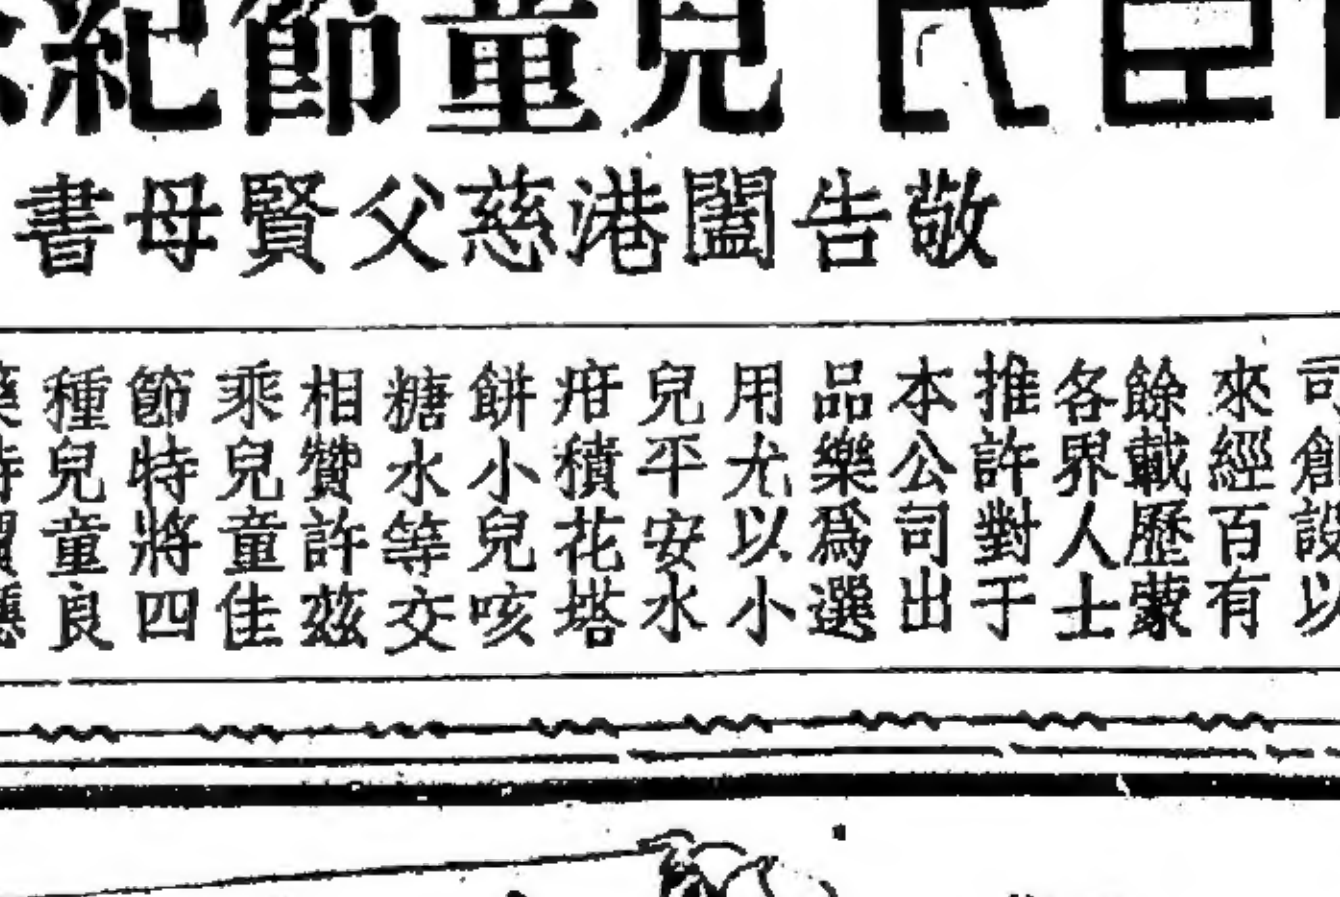 民 兒童節紀
敬告闔港慈父賢母書
司創設以
來經百有
餘載歷蒙
各界人士
推許對于
本公司出
品樂爲選
用尤以小
兒平安水
疳積花塔
餅小兒咳
糖水等交
相贊許茲
乘兒童佳
節特將四
種兒童良